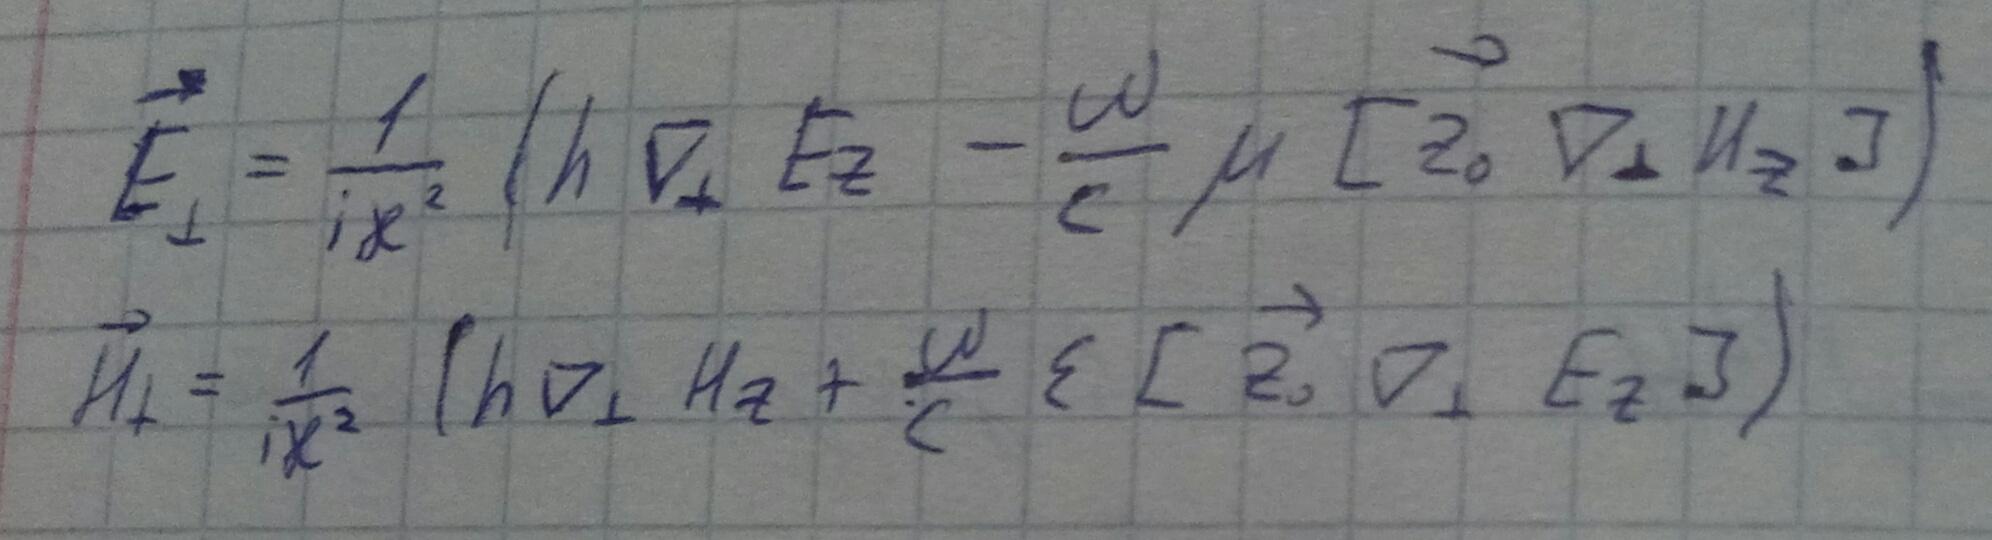 $\vec{E}_{\perp} = \frac{1}{i\varkappa^2} \left( h \nabla_{\perp} E_z - \frac{\omega}{c} \mu [\vec{z}_0 \nabla_{\perp} H_z] \right)$
$\vec{H}_{\perp} = \frac{1}{i\varkappa^2} \left( h \nabla_{\perp} H_z + \frac{\omega}{c} \varepsilon [\vec{z}_0 \nabla_{\perp} E_z] \right)$